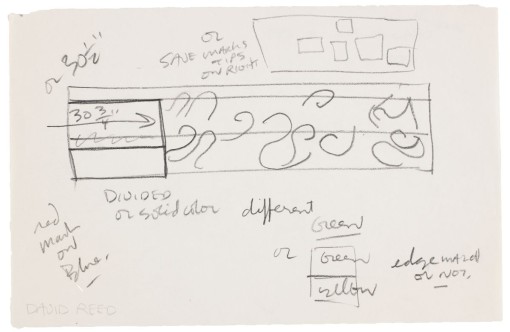 or 30½"
or
SAVE marks
TIPS
ON RIGHT
30 3/4"
DIVIDED
or solid color
different
red
mark
on
Blue.
Green
or
Green
yellow
edge mared
or not.
DAVID REED